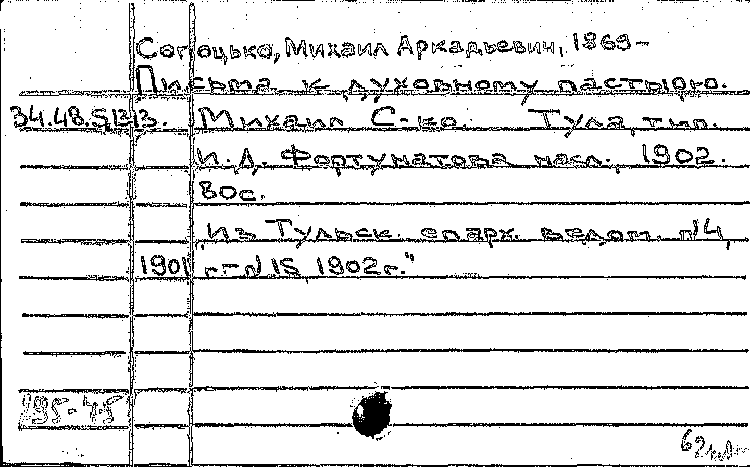 Сопоцько, Михаил Аркадьевич, 1869-
Письма к духовному пастырю.
34.48.5.133. Михаил С-ко. Тула, тип.
И.Д. Фортунатова насл., 1902.
80с.
„Из Тульск. епарх. ведом. №4,
1901 г.-№15, 1902г."
195-75